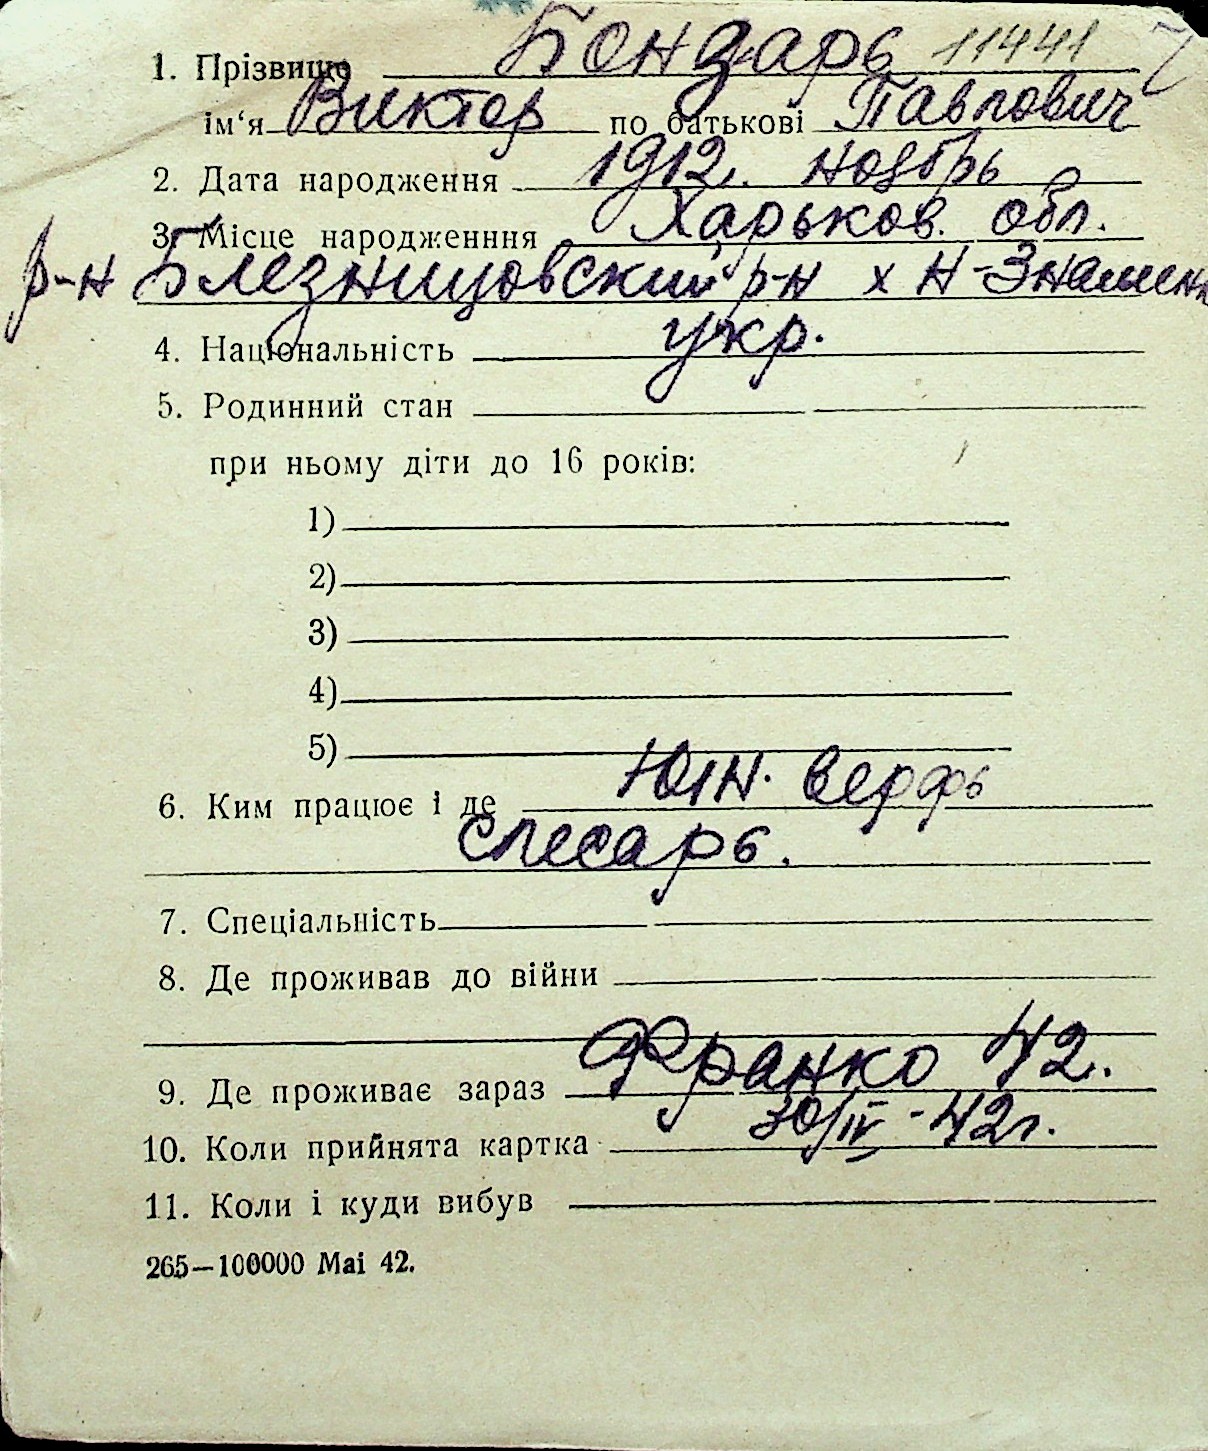 1. Прізвище Бондарь 11441
ім‘я Виктор по батькові Павлович
2. Дата народження 1912. ноябрь
3. Місце народженння Харьков. обл.
р-н Блезнецовский р-н х Н-Знаменк
4. Національність укр.
5. Родинний стан
при ньому діти до 16 років:
1)
2)
3)
4)
5)
6. Ким працює і де Южн. верфь
слесарь.
7. Спеціальність
8. Де проживав до війни
9. Де проживає зараз Франко 42.
10. Коли прийнята картка 30/IV-42г.
11. Коли і куди вибув
265—100000 Mai 42.